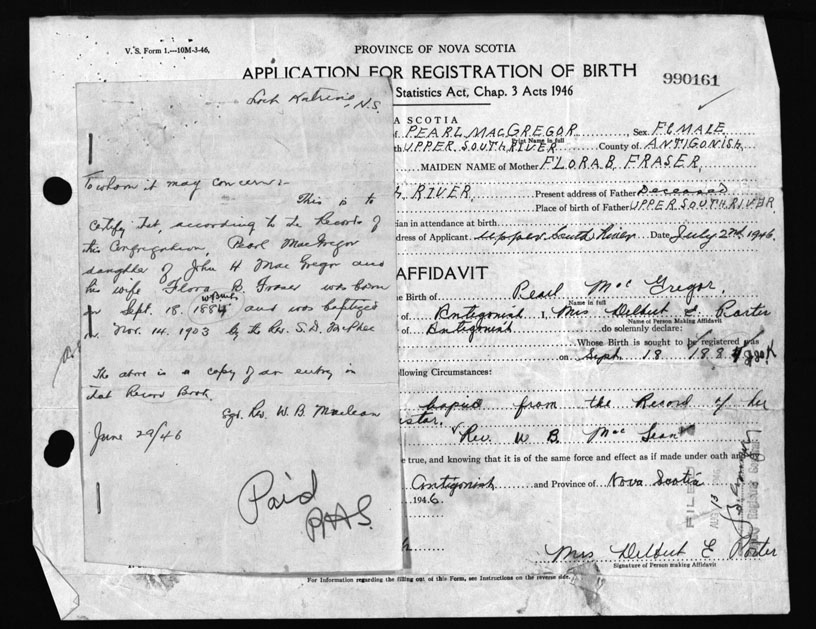 V. S. Form 1.—10M-3-46.
PROVINCE OF NOVA SCOTIA
APPLICATION FOR REGISTRATION OF BIRTH
990161
Statistics Act, Chap. 3 Acts 1946
Loch Katrine, N.S.
To whom it may concern:-
This is to
certify that, according to the Records of
this Congregation, Pearl MacGregor
daughter of John H MacGregor and
his wife Flora B. Fraser was born
on Sept. 18. 1884 and was baptized
on Nov. 14. 1903 by the Rev. S.D. McPhee
The above is a copy of an entry in
that Record Book.
Sgd. Rev. W. B. Maclean
June 29/46
Paid
A SCOTIA
of PEARL MACGREGOR, Sex FEMALE
Print Name in full
UPPER SOUTH RIVER County of ANTIGONISH
MAIDEN NAME of Mother FLORA B. FRASER
H RIVER Present address of Father Deceased
Place of birth of Father UPPER SOUTH RIVER
ian in attendance at birth
dress of Applicant Upper South River Date July 2nd, 1946.
AFFIDAVIT
e Birth of Pearl MacGregor.
Name in full
of Antigonish I, Mrs Delbert E. Porter
Name of Person Making Affidavit
of Antigonish do solemnly declare:
Whose Birth is sought to be registered was
on Sept 18 188
ollowing Circumstances:
copied from the Record of her
Rev. W B. Mac Lean
e true, and knowing that it is of the same force and effect as if made under oath and
Antigonish and Province of Nova Scotia
1946
FILED
Mrs Delbert E Porter
Signature of Person making Affidavit
For Information regarding the filling out of this Form, see Instructions on the reverse side.